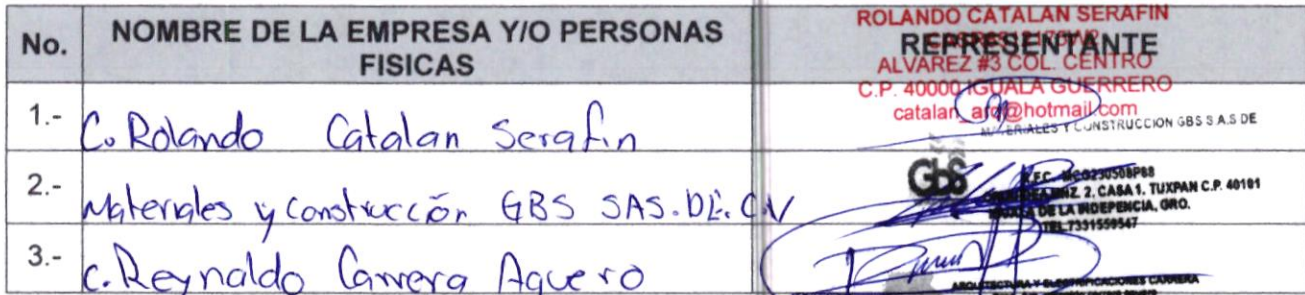 No.
NOMBRE DE LA EMPRESA Y/O PERSONAS
FISICAS
REPRESENTANTE
ROLANDO CATALAN SERAFIN
ALVAREZ #3 COL. CENTRO
C.P. 40000 IGUALA GUERRERO
catalan_arq@hotmail.com
1.- C. Rolando Catalan Serafin
MATERIALES Y CONSTRUCCION GBS S.A.S DE
2.- Materiales y Construcción GBS SAS. DE. C.V
Gbs
R.F.C. MCG230508P88
MZ. 2, CASA 1, TUXPAN C.P. 40101
IGUALA DE LA INDEPENCIA, GRO.
TEL.7331559547
3.- C. Reynaldo Carrera Aguero
ARQUITECTURA Y ELECTRIFICACIONES CARRERA